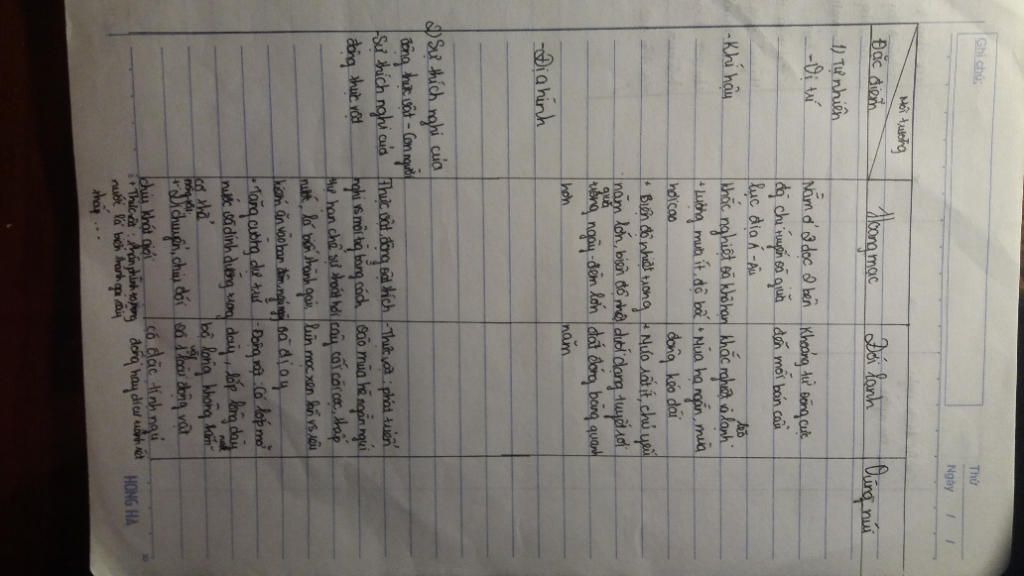 Ghi chú:
Thứ
Ngày / /
Môi trường
Đặc điểm
Hoang mạc
Đới lạnh
Vùng núi
1) Tự nhiên
- Vị trí
Nằm ở dọc 2 bên
chí tuyến và giữa
lục địa Á - Âu
Khoảng từ vòng cực
đến mỗi bán cầu
- Khí hậu
khắc nghiệt và khô hạn
+ Lượng mưa ít, độ bốc
hơi cao
+ Biên độ nhiệt trong
năm lớn, biên độ nhiệt
trong ngày - đêm lớn
hơn
khắc nghiệt, lạnh lẽo
+ Mùa hạ ngắn, mùa
đông kéo dài
+ Mưa rất ít, chủ yếu
dưới dạng tuyết rơi
đất đóng băng quanh
năm
- Địa hình
2) Sự thích nghi của
động thực vật - con người
- Sự thích nghi của
động thực vật
Thực vật động vật thích
nghi vs môi trường bằng cách
tự hạn chế sự thoát hơi
nước, lá biến thành gai
kiếm ăn vào ban đêm
+ Tăng cường dự trữ
nước và dinh dưỡng trong
cơ thể
+ Di chuyển, chịu đói
chịu khát giỏi
nước, lá biến thành gai
thấp...
- Thực vật: phát triển
vào mùa hè ngắn ngủi
cây cối còi cọc, thấp
lùn mọc xen lẫn vs rêu
và địa y
- Động vật: có lớp mỡ
dày, lớp lông dày
bộ lông không thấm nước
và 1 vài động vật
có đặc tính ngủ
đông hay di cư
HONG HA